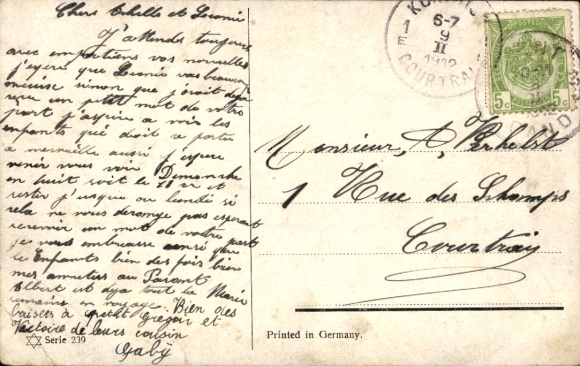 Chers Achille et Leonie
J'attendez toujours
avec empatiens vos nouvelles
j'espere que Leonie vas beaucoup
mieux sinon que j'orait deja
reçu un ptit mot de votre
part j'aspire a vois les
enfants qui doit se porter
a merveille aussi j'espere
venir nous voir Dimanche
en huit soit le 18 ct et
rester j'usque au lundi si
cela ne nous derange pas esperant
recevoir un mot de votre part
je vous embrasse ainsi que
le Enfants bien des fois bien
mes amities au Parant
Albert est deja tout la
en voyage. Bien des
baisers à Gregoir et
Victoire de leurs cousin
Gabÿ
Serie 239
6-7
1 9
E II
1912
COURTRAI
5c 5c
Monsieur, A, Verhelst
1 Rue des Champs
Courtray
Printed in Germany.